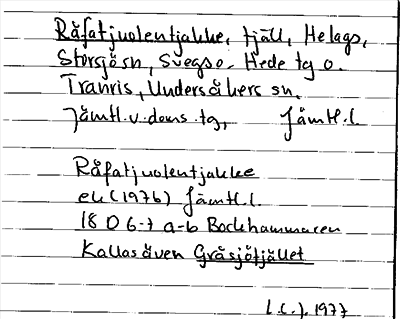 Råfatjuolentjakke, fjäll, Helags,
Storsjö sn, Svegs o. Hede tg o.
Tranris, Undersåkers sn,
Jämtl. v. doms. tg, Jämtl. l.
Råfatjuolentjakke
ek (1976) Jämtl. l.
18 D 6-7 a-b Bockhammaren
Kallas även Gråsjöfjället
L.C.J. 1977